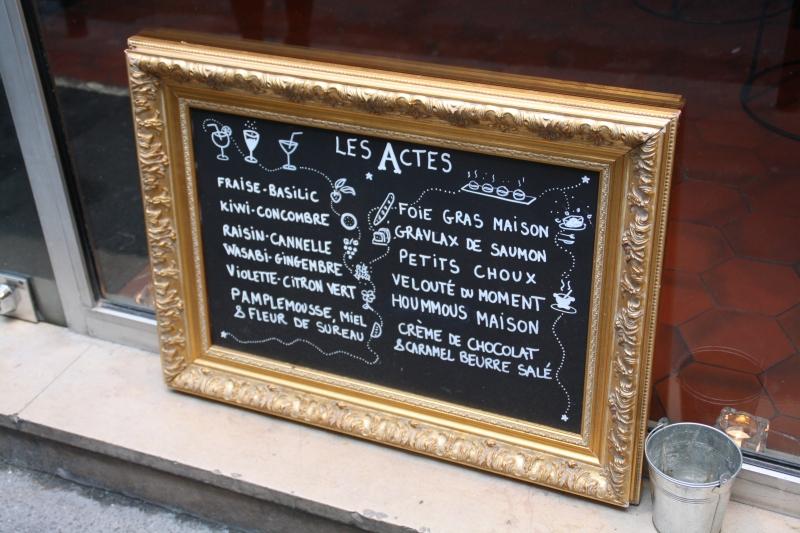 LES ACTES
FRAISE-BASILIC
KIWI-CONCOMBRE
RAISIN-CANNELLE
WASABI-GINGEMBRE
VIOLETTE-CITRON VERT
PAMPLEMOUSSE, MIEL
& FLEUR DE SUREAU
FOIE GRAS MAISON
GRAVLAX DE SAUMON
PETITS CHOUX
VELOUTÉ DU MOMENT
HOUMMOUS MAISON
CRÈME DE CHOCOLAT
& CARAMEL BEURRE SALÉ